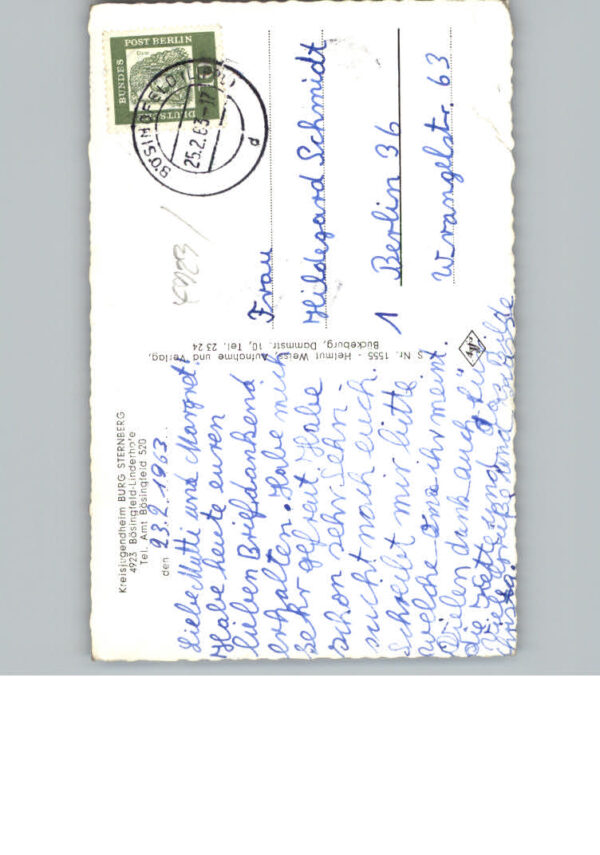 Kreisjugendheim BURG STERNBERG
4923 Bösingfeld-Linderhofe
Tel. Amt Bösingfeld 520
den 23.2.1963.
Liebe Mutti und Margret!
Habe heute euren
lieben Brief dankend
erhalten. Habe mich
sehr gefreut. Habe
schon sehr Sehn
sucht nach euch.
Schreibt mir bitte
welche Oma ihr meint.
Vielen dank auch für
die Kette und das Bilde
Christa.
S Nr. 1555 - Helmut Weiss, Aufnahme und Verlag,
Bückeburg, Dammstr. 10, Tel. 23 24
DEUTSCHE BUNDESPOST BERLIN
BÖSINGFELD (LIPPE)
25.2.63-17
d
4923
Frau
Hildegard Schmidt
1 Berlin 36
Wrangelstr. 63